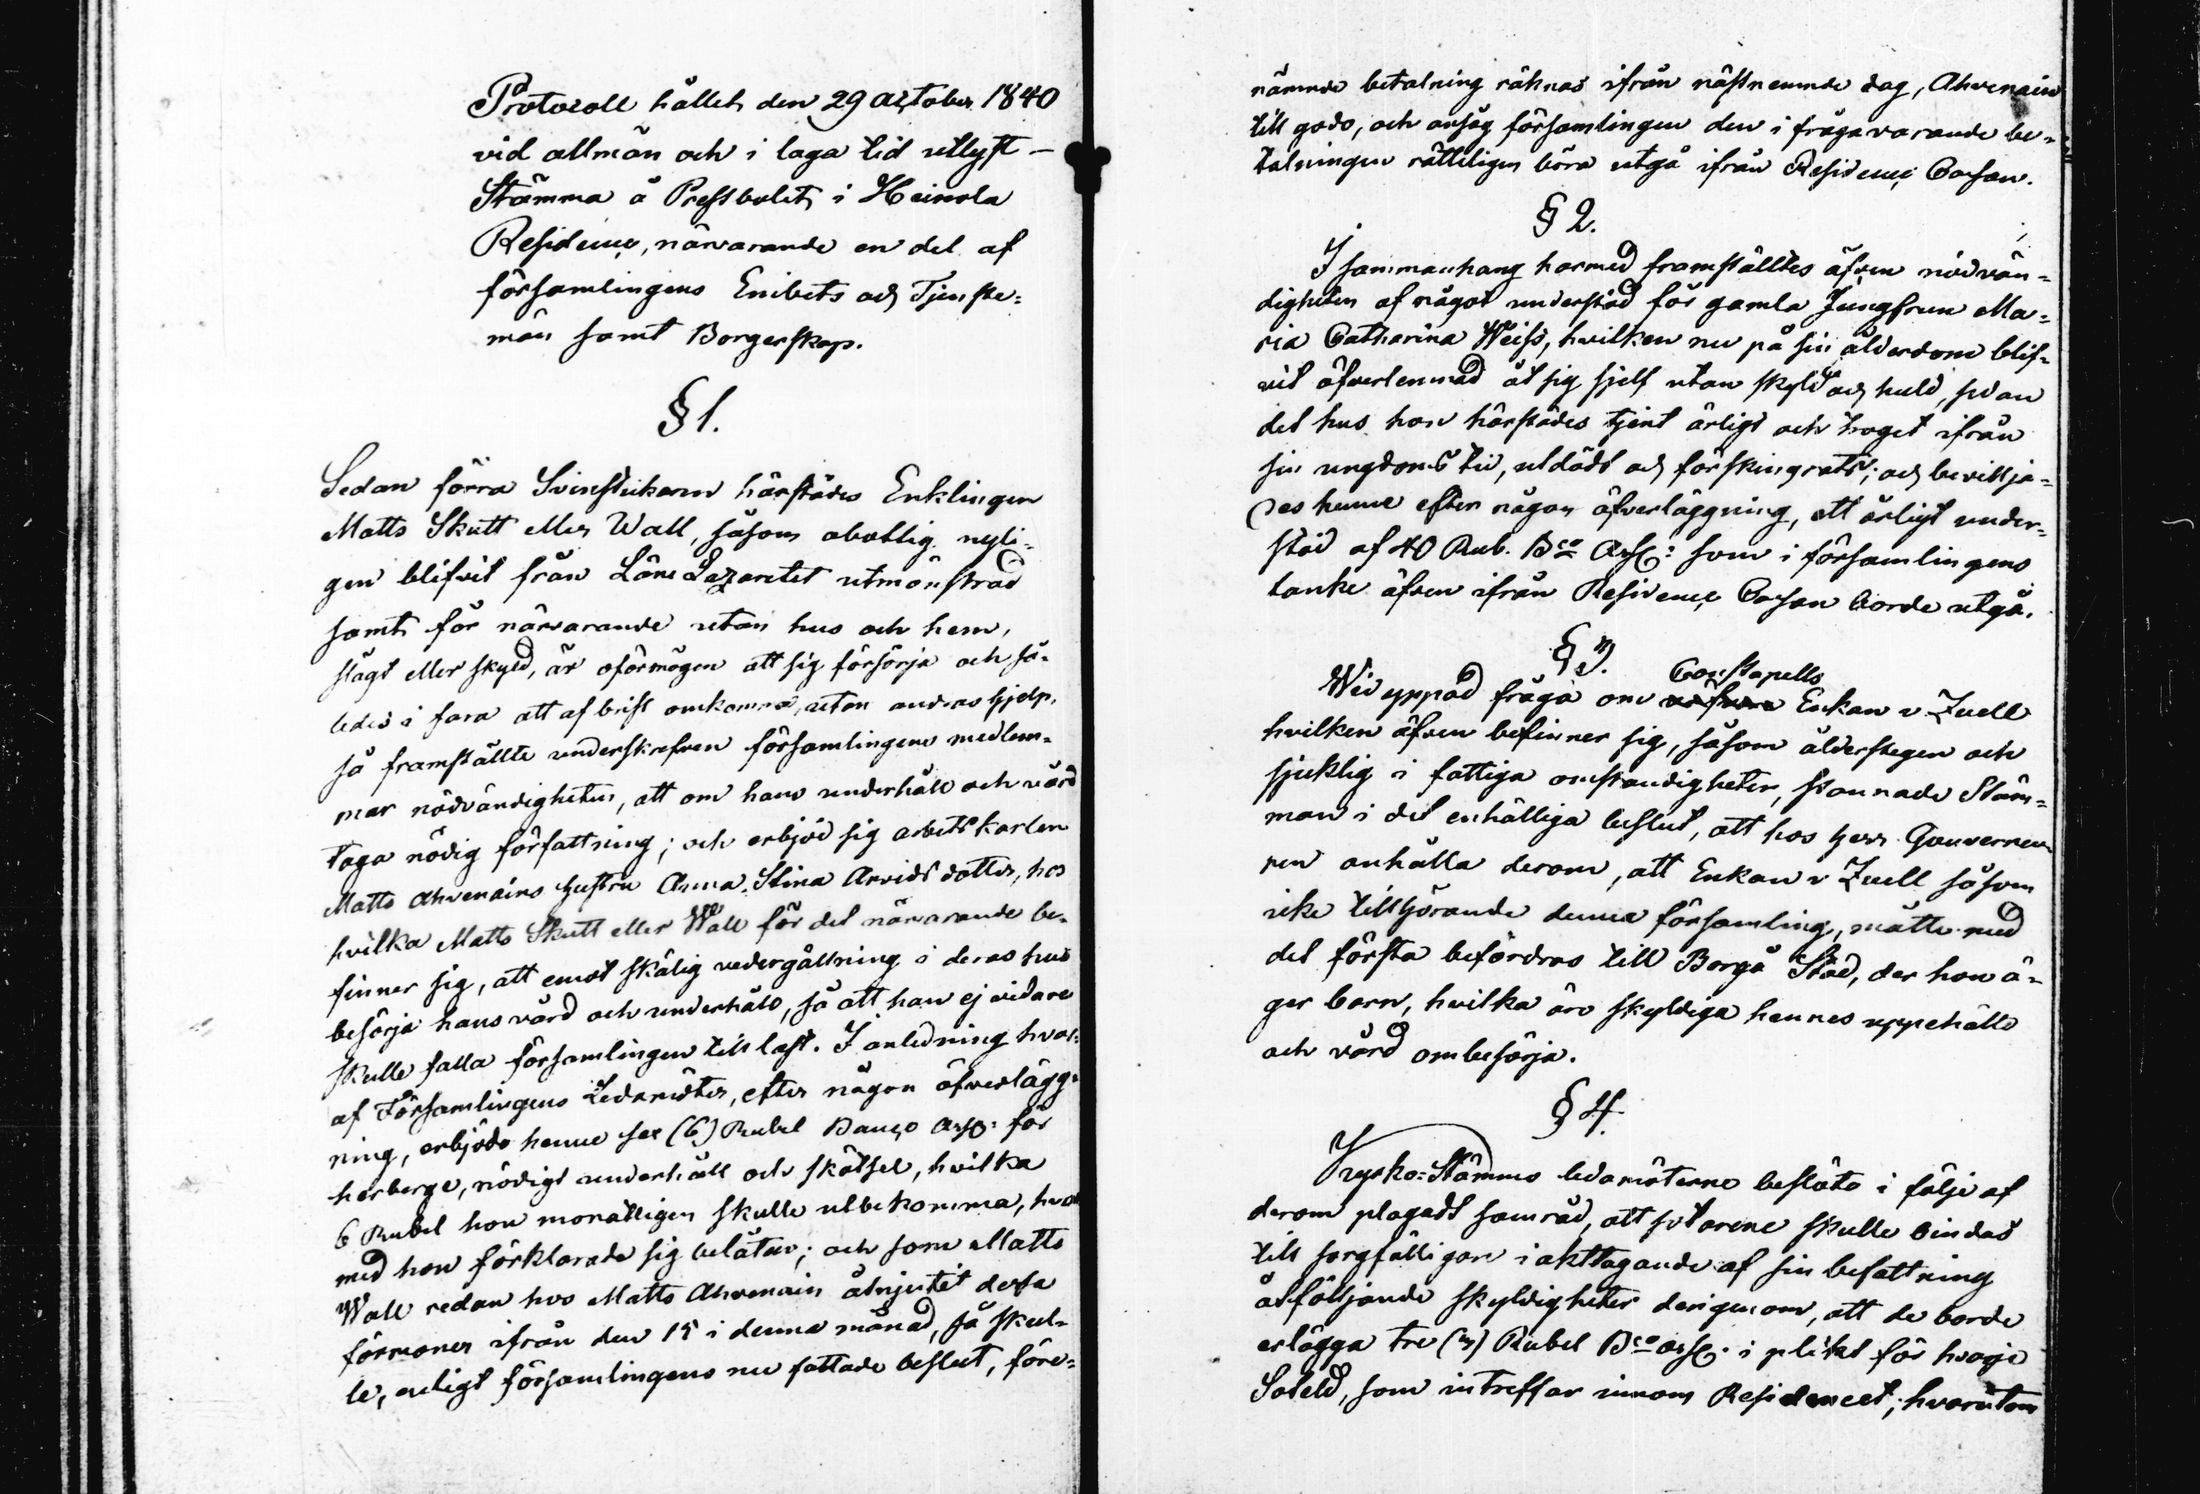 Protocoll hållet den 29 October 1840
vid allmän och i laga tid utlyst -
Stämma å Prestbolet i Heinola
Residence, närvarande en del af
församlingens Embets och Tjenste=
män samt Borgerskap.
§ 1.
Sedan förra Svinstiskaren härstädes Enklingen
Matts Skutt eller Wall, såsom obotlig nyli=
gen blifvit från Läns Lazaretet utmönstrad
samt för närvarande utan hus och hem,
slägt eller skyld, är oförmögen att sig försörja och så=
ledes i fara att af brist omkomma, utan andras hjelp,
så framställte underskrefven församlingens medlem=
mar nödvändigheten, att om hans underhåll och vård
taga nödig författning; och erbjöd sig arbetskarlen
Matts Ahvenains hustru Anna Stina Arvidsdotter, hos
hvilka Matts Skutt eller Wall för det närvarande be=
finner sig, att emot skälig vedergällning i deras hus
besörja hans vård och underhåll, så att han ej vidare
skulle falla församlingen till last. I anledning hvar=
af Församlingens Ledamöter, efter någon öfverlägg=
ning, erbjödo henne sex (6) Rubel Banco Ass: för
herberge, nödigt underhåll och skötsel, hvilka
6 Rubel hon monatligen skulle utbekomma, hvar
med hon förklarade sig belåten; och som Matts
Wall redan hos Matts Ahvenain åtnjutit dessa
förmoner ifrån den 15 i denna månad, så skul=
le, enligt församlingens nu fattade beslut, före=
nämnde betalning räknas ifrån nästnemnde dag, Ahvenain
till godo, och ansåg församlingen den i fråga varande be=
talningen rätteligen böra utgå ifrån Residence Cassan.
§ 2.
I sammanhang härmed framställtes äfven nödvän=
digheten af något understöd för gamla Jungfrun Ma=
ria Catharina Weiss, hvilken nu på sin ålderdom blif=
vit öfverlemnad åt sig sjelf utan skyld och huld, sedan
det hus hon härstädes tjent ärligt och troget ifrån
sin ungdoms tid, utdödt och förskingrats; och bevilja=
des henne efter någon öfverläggning, ett årligt under=
stöd af 40 Rub. Bco Ass: som i församlingens
tanke äfven ifrån Residence Cassan borde utgå.
§ 3.
Wid yppad fråga om Constapells Enkan v Zuell
hvilken äfven befinner sig, såsom ålderstegen och
sjuklig i fattiga omständigheter, stannade Stäm=
man i det enhälliga beslut, att hos Herr Gouverneu=
ren anhålla derom, att Enkan v Zuell såsom
icke tillhörande denna församling, måtte med
det första befordras till Borgå Stad, der hon ä=
ger barn, hvilka äro skyldiga hennes uppehälle
och vård ombesörja.
§ 4.
Kyrko=Stämmo ledamöterne beslöto i följe af
derom plagadt samråd, att sotarene skulle bindas
till sorgfälligare iakttagande af sin befattning
åtföljande skyldigheter derigenom, att de borde
erlägga tre (3) Rubel Bco Ass: i plikt för hvarje
Soteld, som inträffar innom Residencet; hvarutom